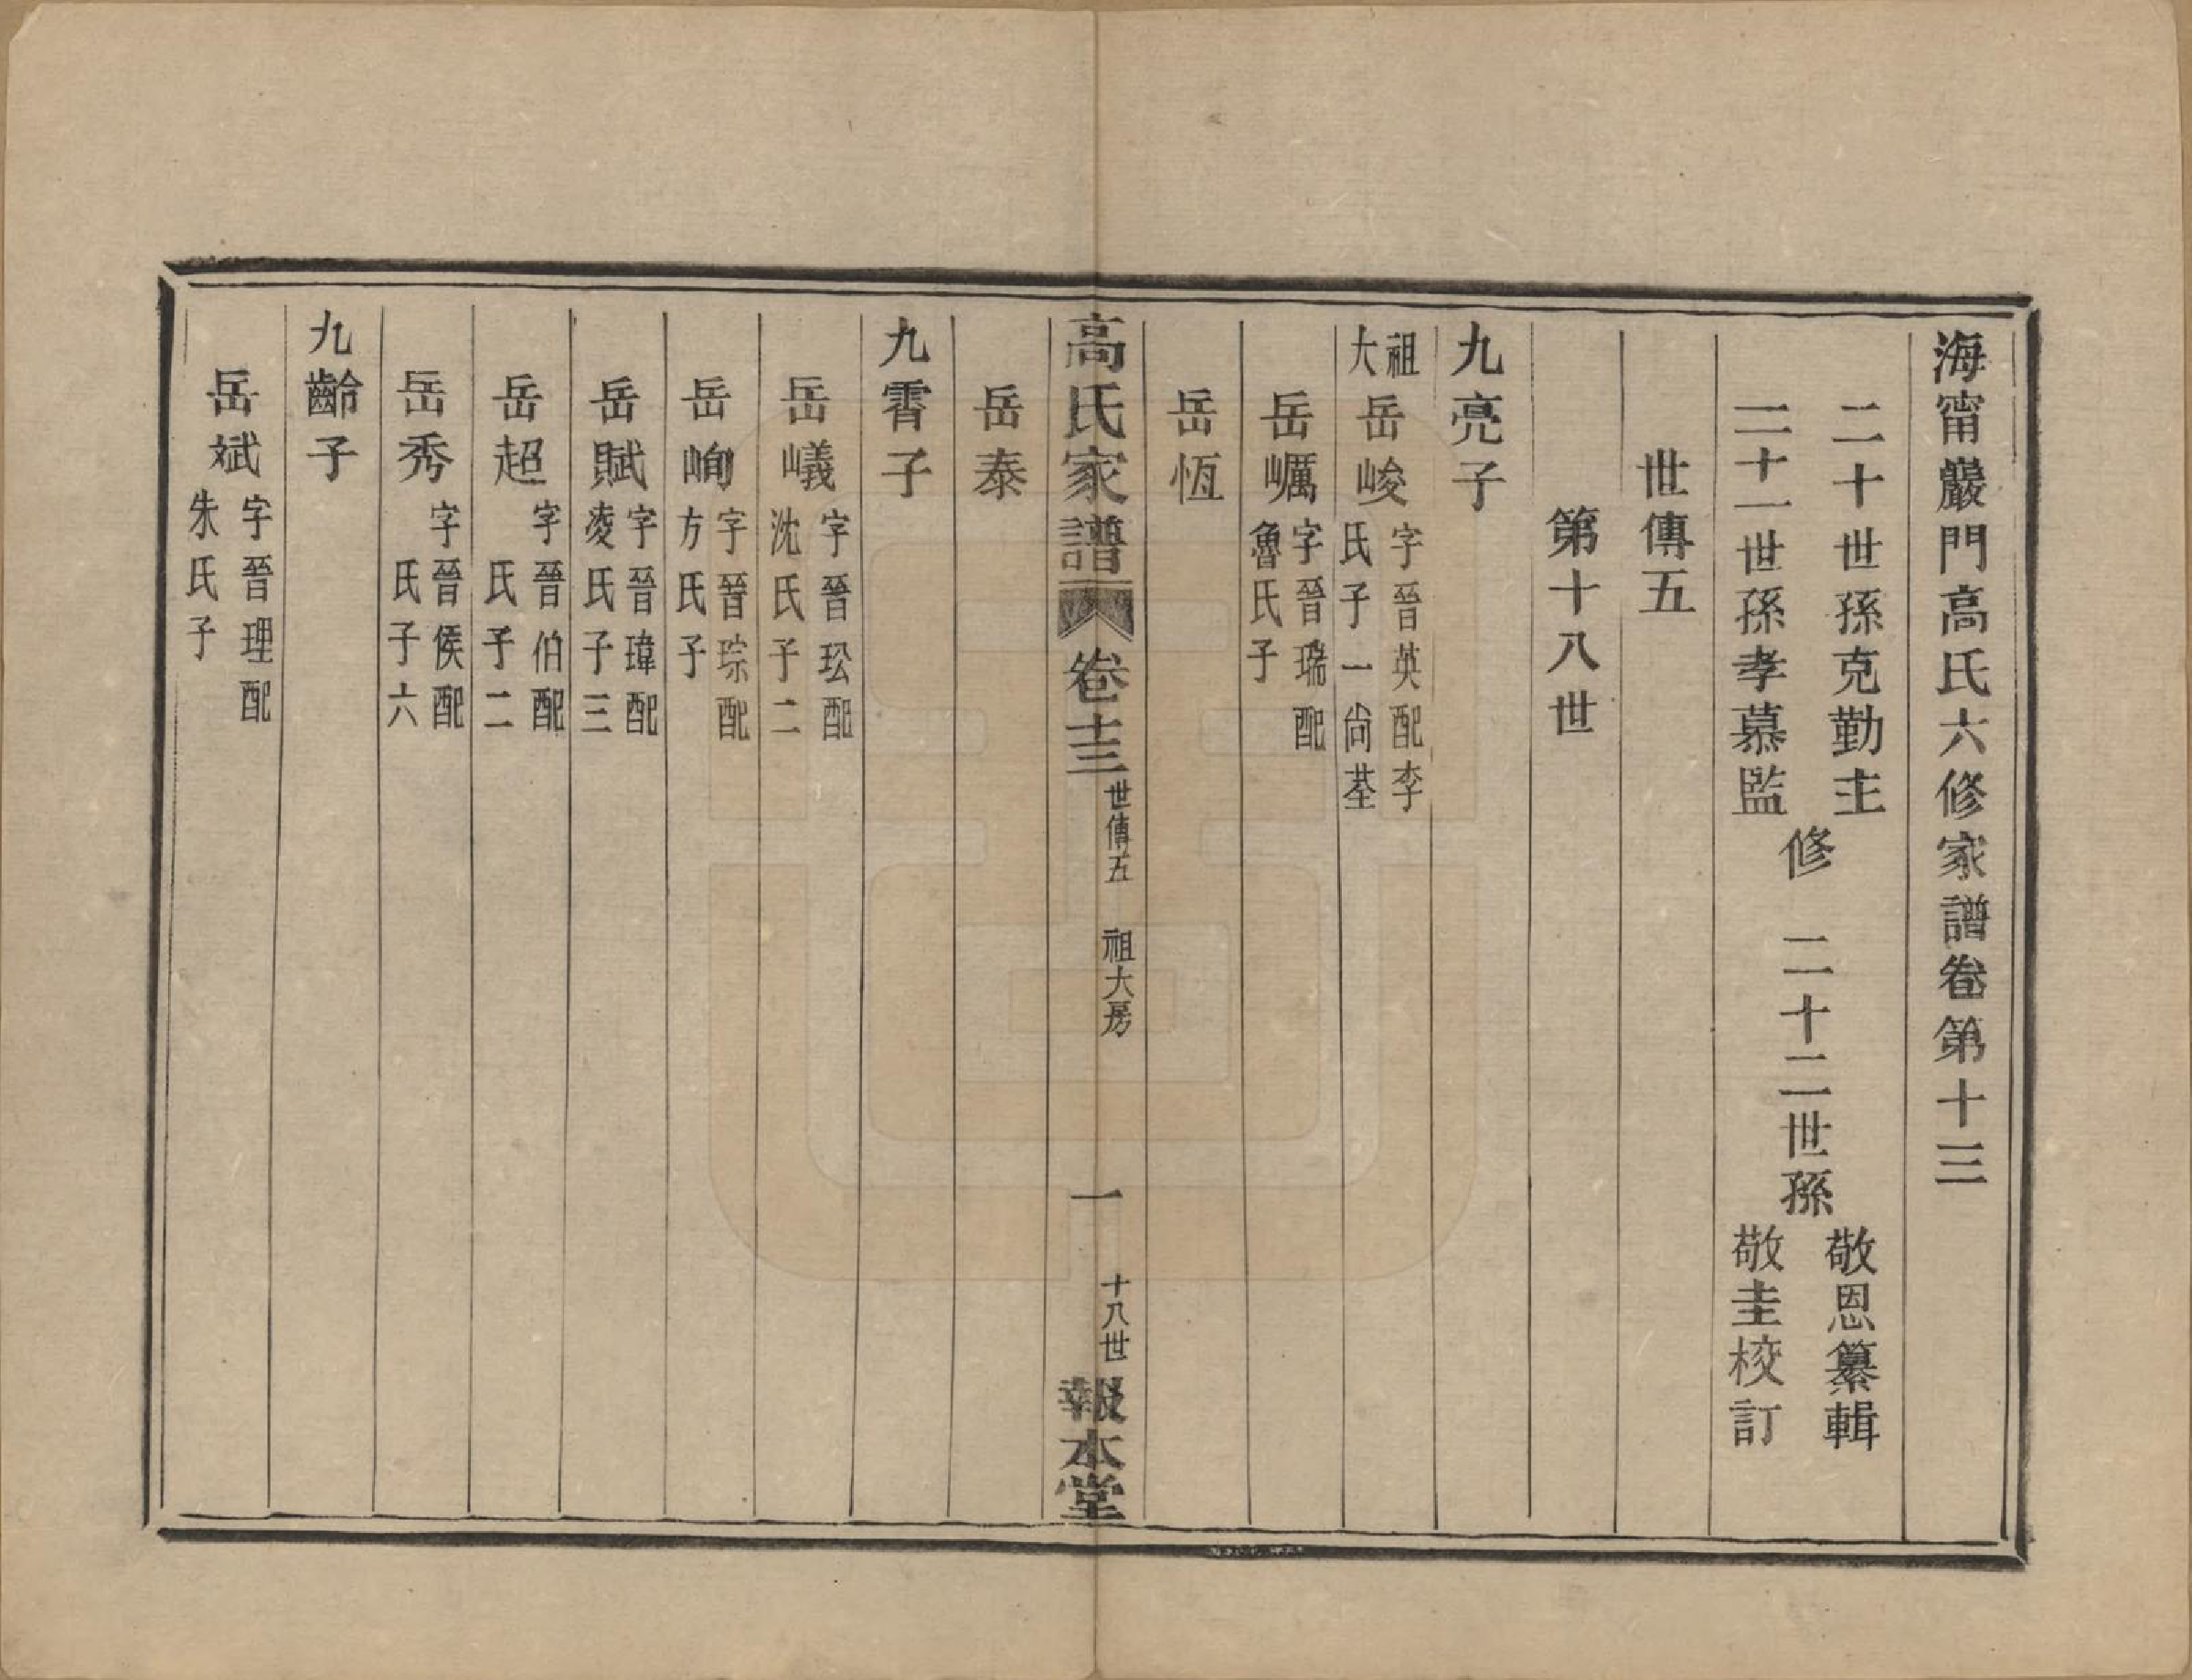 海甯巖門高氏六修家譜卷第十三
二十世孫克勤主
二十一世孫孝慕監
修　二十二世孫
敬恩纂輯
敬圭校訂
世傳五
第十八世
九亮子
祖大
岳峻　字晉英配李
氏子一尚荃
岳巁　字晉瑞配
魯氏子
岳恆
高氏家譜　卷十三　世傳五　祖大房　一　十八世　報本堂
岳泰
九霄子
岳嶬　字晉玜配
沈氏子二
岳峋　字晉琮配
方氏子
岳賦　字晉瑋配
凌氏子三
岳超　字晉伯配
氏子二
岳秀　字晉侯配
氏子六
九齡子
岳斌　字晉理配
朱氏子